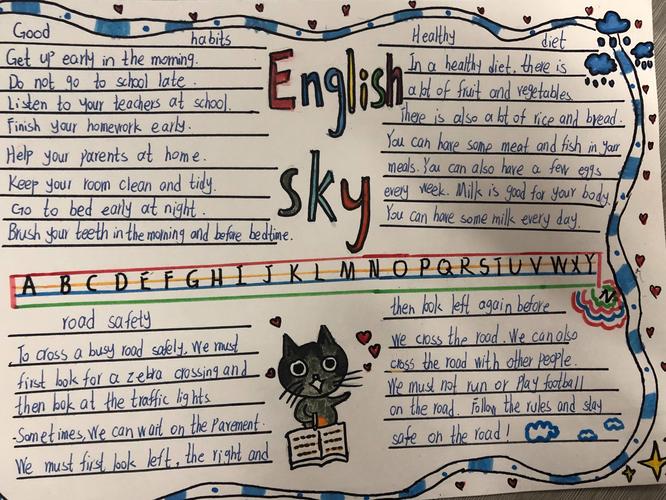 Good habits
Get up early in the morning.
Do not go to school late.
Listen to your teachers at school.
Finish your homework early.
Help your parents at home.
Keep your room clean and tidy.
Go to bed early at night.
Brush your teeth in the morning and before bedtime.
English
sky
Healthy diet
In a healthy diet, there is
a lot of fruit and vegetables.
There is also a lot of rice and bread.
You can have some meat and fish in your
meals. You can also have a few eggs
every week. Milk is good for your body.
You can have some milk every day.
A B C D E F G H I J K L M N O P Q R S T U V W X Y
Z
road safety
To cross a busy road safely, we must
first look for a zebra crossing and
then look at the traffic lights
Sometimes, we can wait on the Pavement.
We must first look left, the right and
then look left again before
we cross the road. We can also
cross the road with other people.
We must not run or Play football
on the road. Follow the rules and stay
safe on the road!